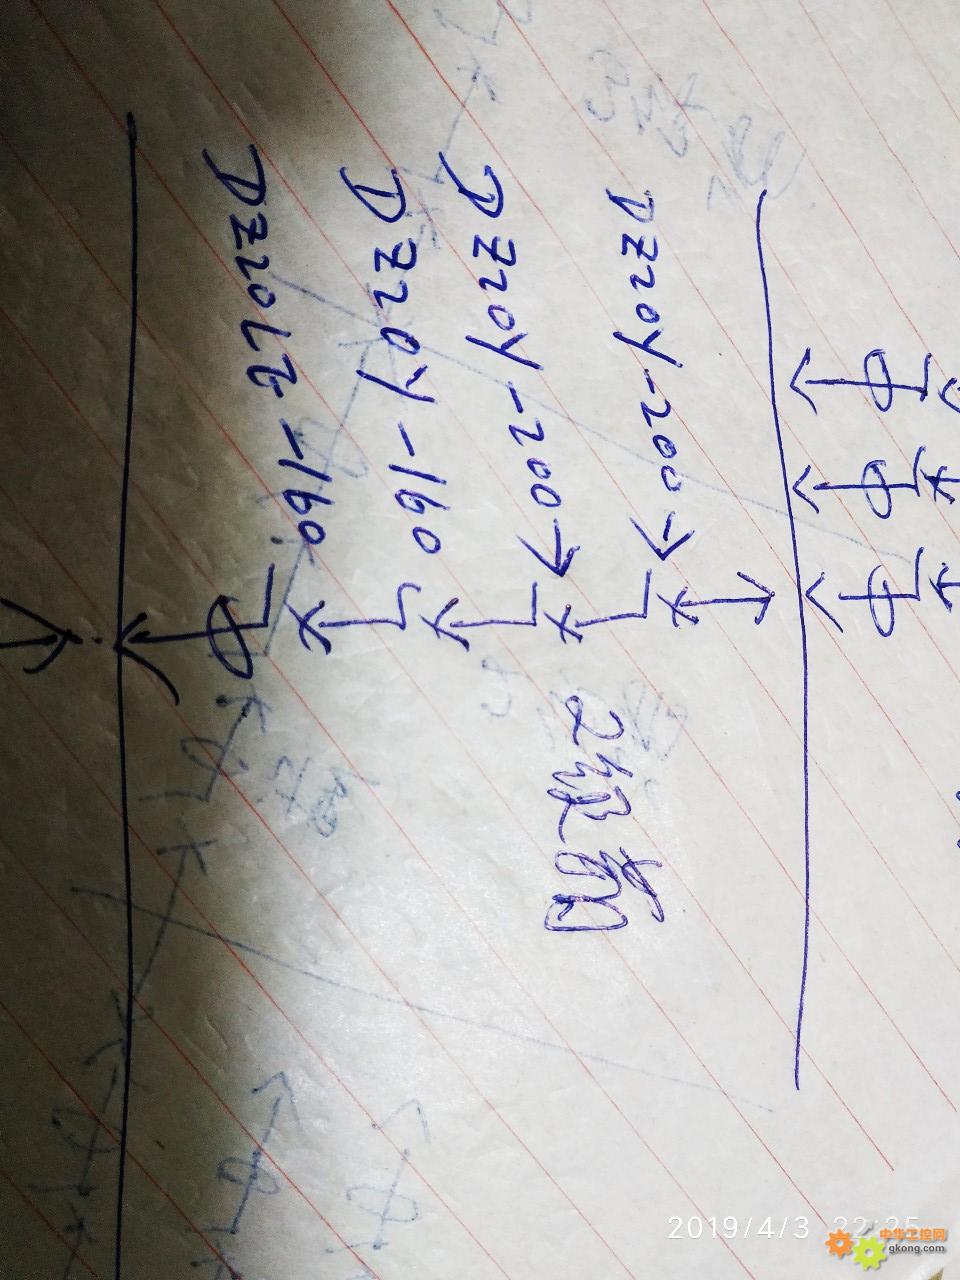 DZ20Y-200
DZ20Y-200
2级
DZ20Y-160
DZ20L2-160
2019/4/3 22:25
中华工控网
gkong.com